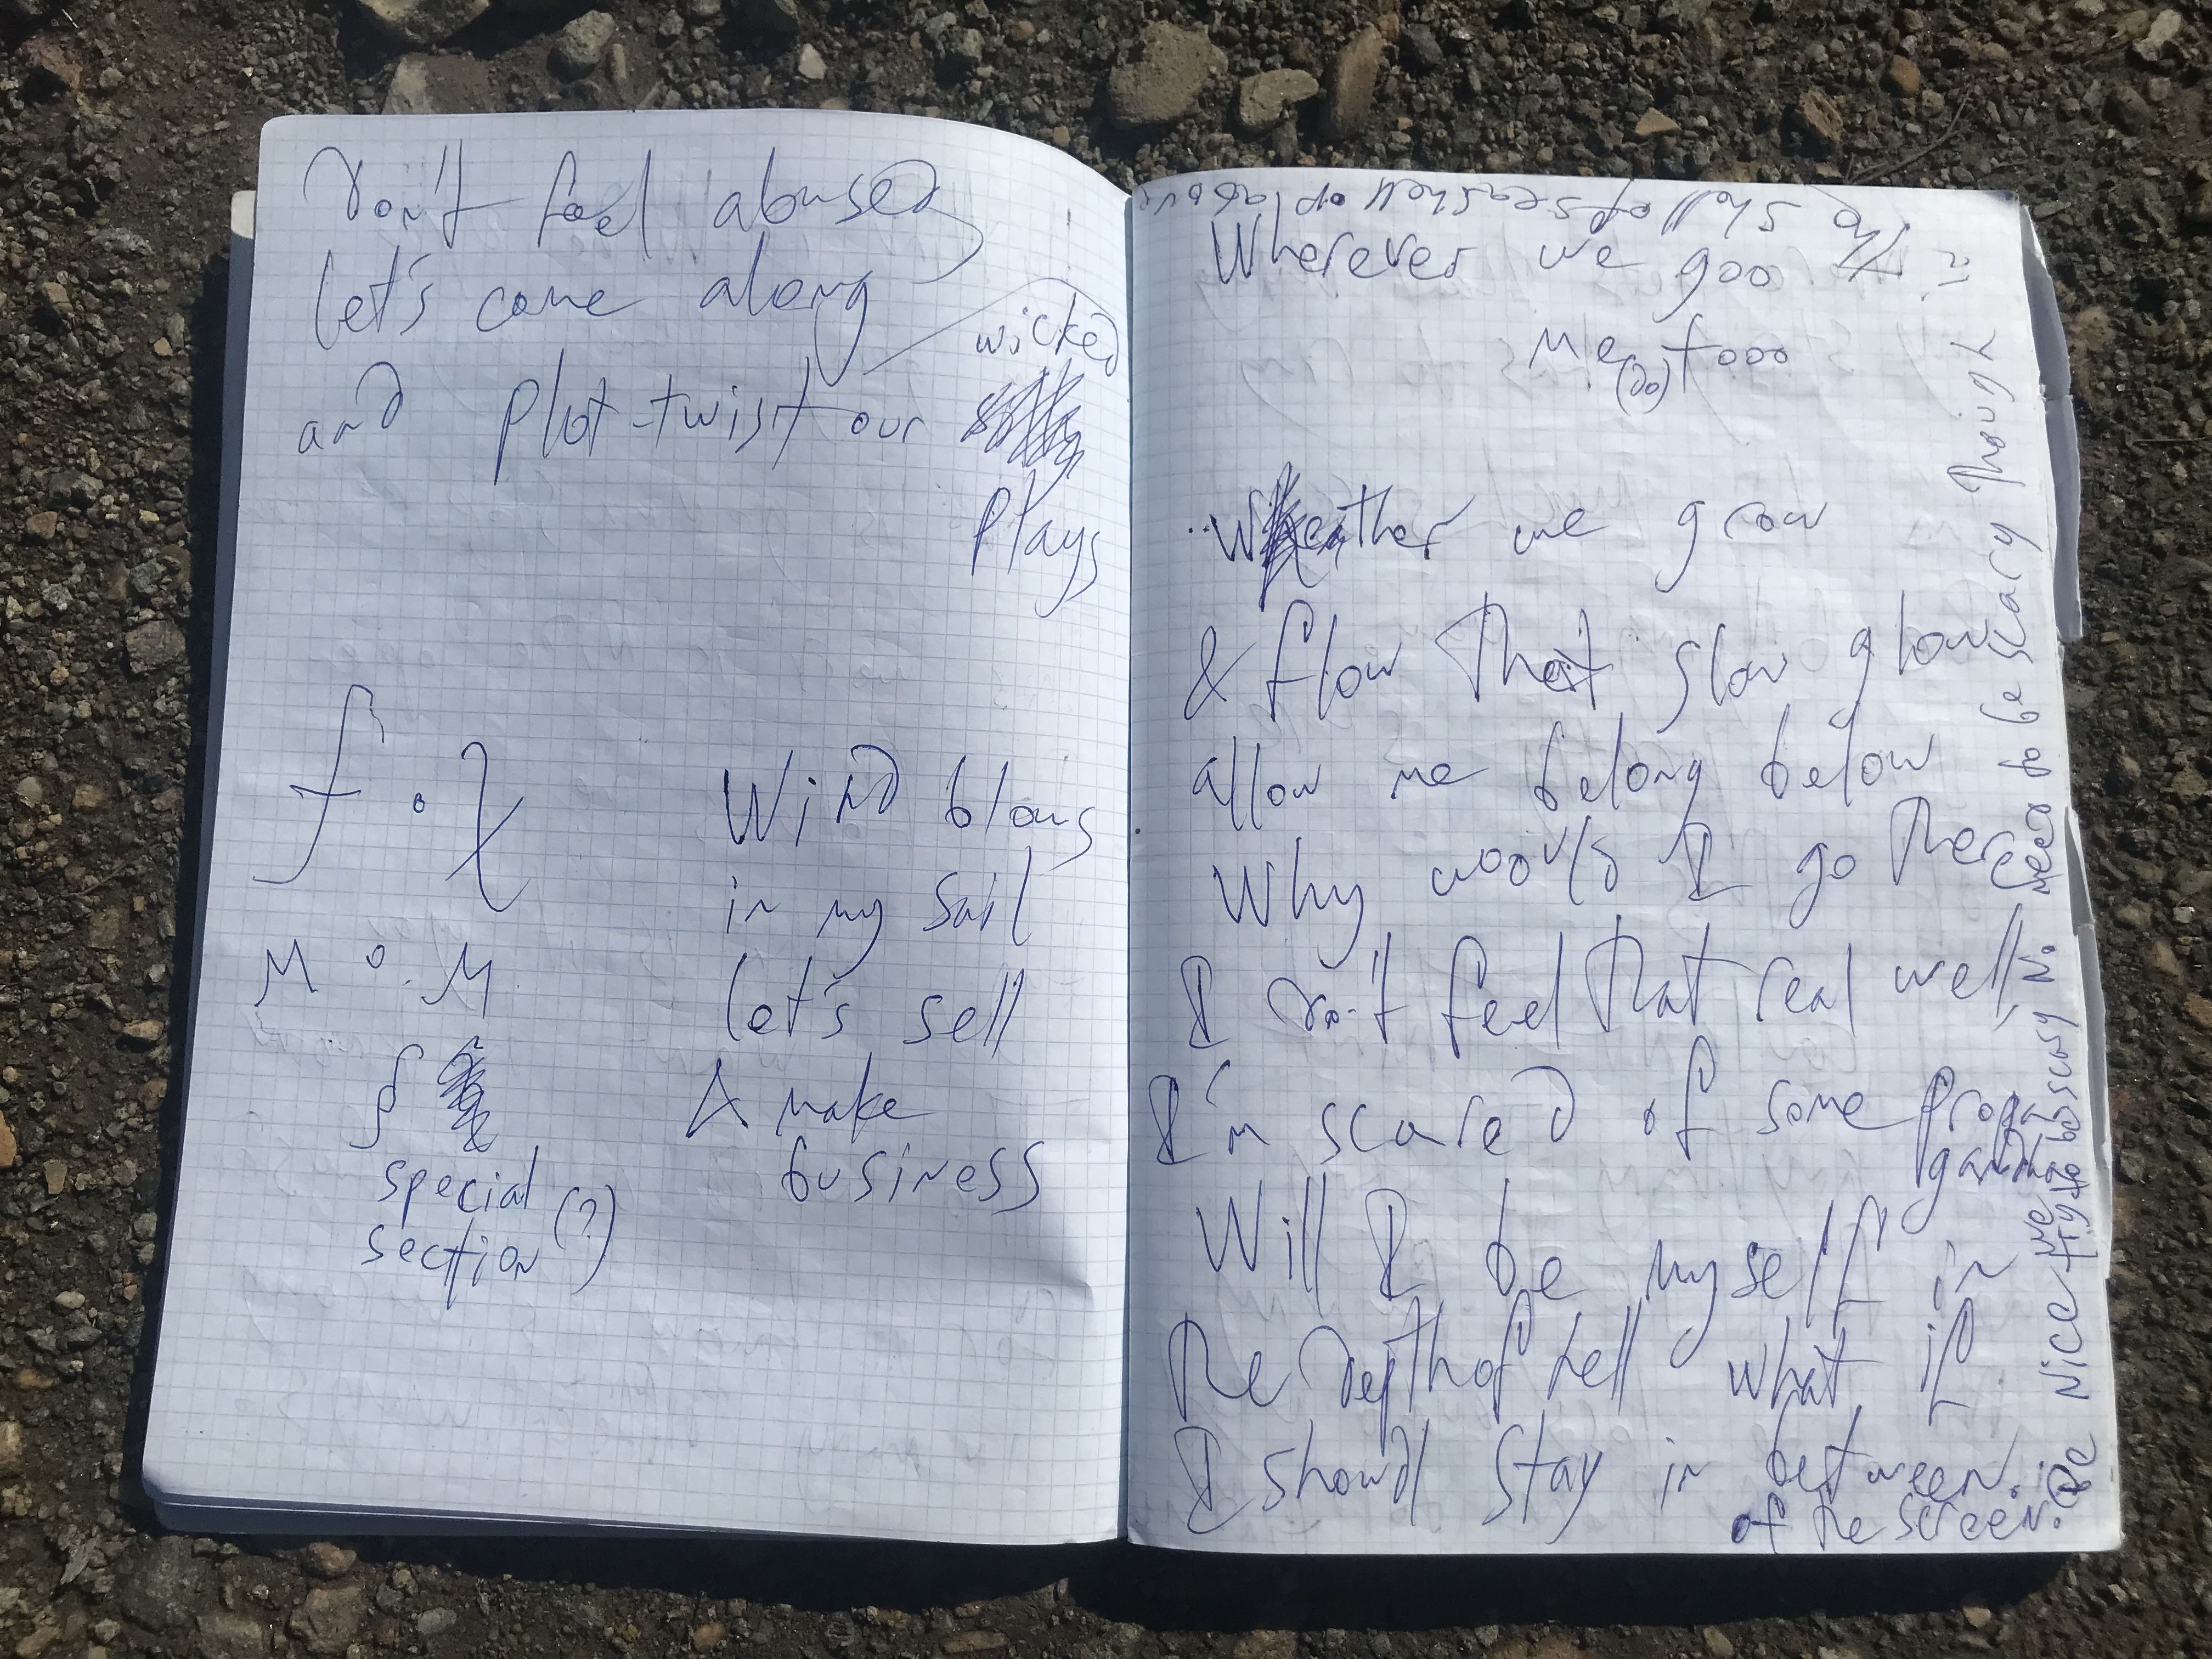 Don't feel abused
Let's come along
and plot-twist our wicked
plays
Wind blows
in my sail
Let's sell
& make
business
f · χ
M · M
special
section (?)
Wherever we goo
Me (do) tooo
Wheather we grow
& flow That slow glow
allow me belong below
Why woould I go there
I don't feel that real well,
I'm scared of some propa
ganda
Will I be myself in
The depth of hell what if
I should stay in between
of the screen.
Be Nice we try to be scary No need to be scary though
The shell of seashell